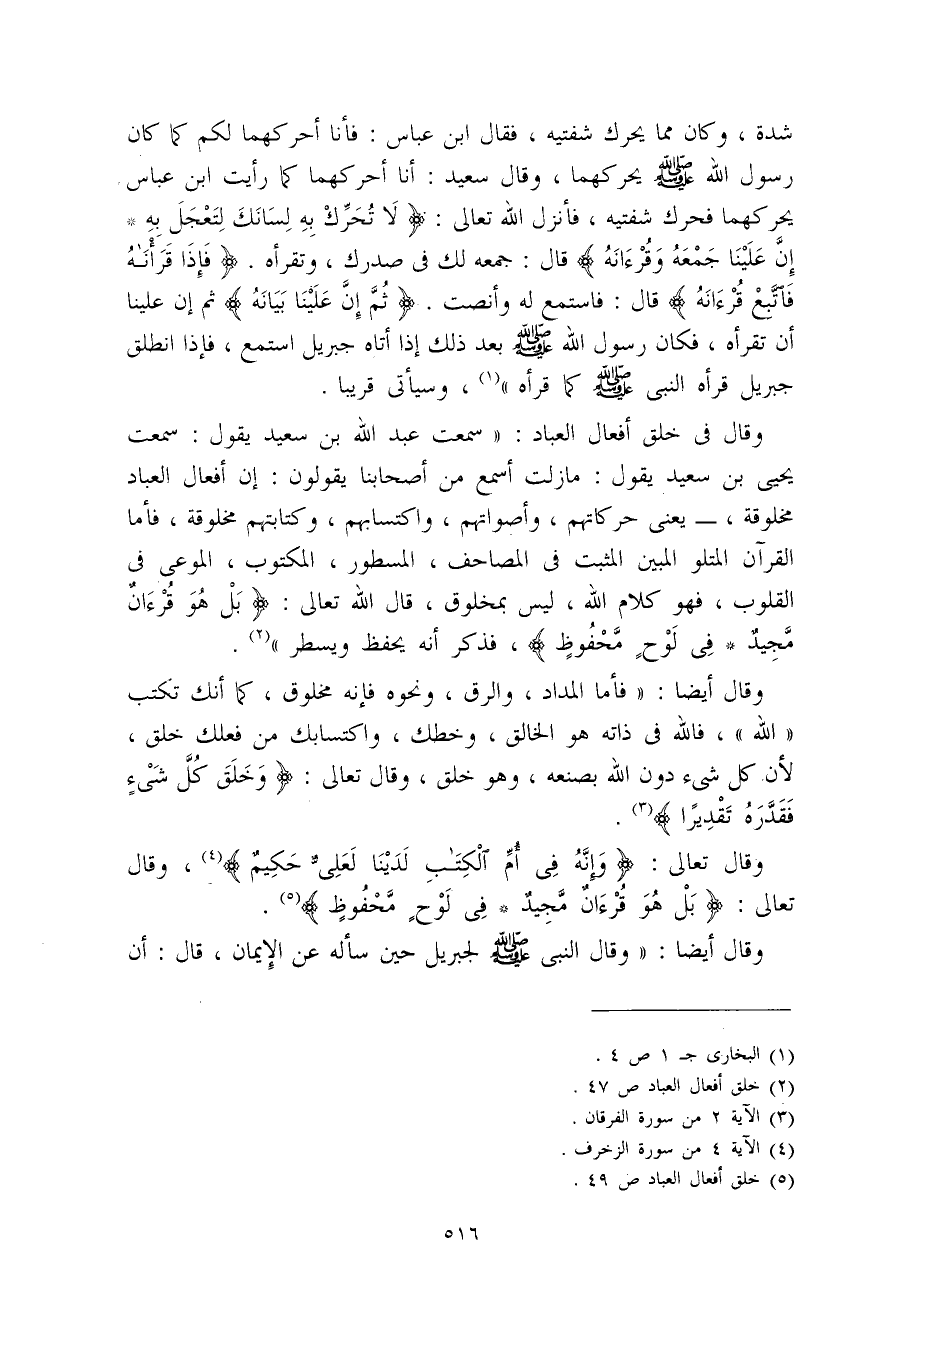 شدة ، وكان مما يحرك شفتيه ، فقال ابن عباس : فأنا أحركهما لكم كما كان
رسول الله ﷺ يحركهما ، وقال سعيد : أنا أحركهما كما رأيت ابن عباس
يحركهما فحرك شفتيه ، فأنزل الله تعالى : ﴿ لَا تُحَرِّكْ بِهِ لِسَانَكَ لِتَعْجَلَ بِهِ *
إِنَّ عَلَيْنَا جَمْعَهُ وَقُرْءَانَهُ ﴾ قال : جمعه لك فى صدرك ، وتقرأه . ﴿ فَإِذَا قَرَأْنَٰهُ
فَٱتَّبِعْ قُرْءَانَهُ ﴾ قال : فاستمع له وأنصت . ﴿ ثُمَّ إِنَّ عَلَيْنَا بَيَانَهُ ﴾ ثم إن علينا
أن تقرأه ، فكان رسول الله ﷺ بعد ذلك إذا أتاه جبريل استمع ، فإذا انطلق
جبريل قرأه النبى ﷺ كما قرأه »(١) ، وسيأتى قريبا .
وقال فى خلق أفعال العباد : « سمعت عبد الله بن سعيد يقول : سمعت
يحيى بن سعيد يقول : مازلت أسمع من أصحابنا يقولون : إن أفعال العباد
مخلوقة ، — يعنى حركاتهم ، وأصواتهم ، واكتسابهم ، وكتابتهم مخلوقة ، فأما
القرآن المتلو المبين المثبت فى المصاحف ، المسطور ، المكتوب ، الموعى فى
القلوب ، فهو كلام الله ، ليس بمخلوق ، قال الله تعالى : ﴿ بَلْ هُوَ قُرْءَانٌ
مَّجِيدٌ * فِى لَوْحٍ مَّحْفُوظٍ ﴾ ، فذكر أنه يحفظ ويسطر »(٢) .
وقال أيضا : « فأما المداد ، والرق ، ونحوه فإنه مخلوق ، كما أنك تكتب
« الله » ، فالله فى ذاته هو الخالق ، وخطك ، واكتسابك من فعلك خلق ،
لأن كل شىء دون الله بصنعه ، وهو خلق ، وقال تعالى : ﴿ وَخَلَقَ كُلَّ شَىْءٍ
فَقَدَّرَهُ تَقْدِيرًا ﴾(٣) .
وقال تعالى : ﴿ وَإِنَّهُ فِى أُمِّ ٱلْكِتَٰبِ لَدَيْنَا لَعَلِىٌّ حَكِيمٌ ﴾(٤) ، وقال
تعالى : ﴿ بَلْ هُوَ قُرْءَانٌ مَّجِيدٌ * فِى لَوْحٍ مَّحْفُوظٍ ﴾(٥) .
وقال أيضا : « وقال النبى ﷺ لجبريل حين سأله عن الإيمان ، قال : أن
(١) البخارى جـ ١ ص ٤ .
(٢) خلق أفعال العباد ص ٤٧ .
(٣) الآية ٢ من سورة الفرقان .
(٤) الآية ٤ من سورة الزخرف .
(٥) خلق أفعال العباد ص ٤٩ .
٥١٦